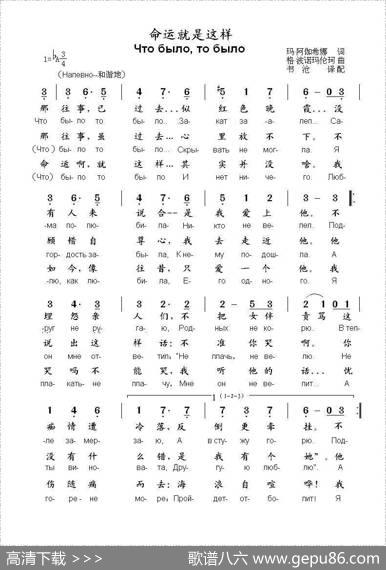 命运就是这样
Что было, то было
玛·阿伽希娜 词
格·波诺玛伦珂 曲
书 沧 译配
(Напевно--和谐地)
那 往 事, 已 过 去…似 红 色 晚 霞…没
Что бы-ло то бы-ло.За- кат за а- лел...Са-
那 往 事, 虽 过 去…心 里 放 不 下。不
(Что) бы-ло то бы-ло... Скры- вать не мог- ла. Я
命 运 啊, 就 这 样…其 实 并 没 啥。我
(Что) бы-ло то бы-ло И нет ни-че- го. Люб-
有 人 来 说 合--是 我 爱 上 他。不
ма по-лю- би-ла- Ни- кто не ве- лел. Под-
顾 惜 自 尊 心, 我 去 走 近 他。他
гор-дость за- бы-ла, К не- му по- дош- ла. А
如 今, 像 往 昔, 只 爱 一 个 他。我
-лю, как лю- би-ла, Е- го од-но- го. Я
理 怨 亲 人 们, 不 把 女 伴 责 骂 这
-руг не ру- га-ю, Род- ных не ко- рю. В теп-
说 出 这 样 话: 不 准 你 哭 啊。你
он мне от- ве-тил: "Не плачь, не ве- лю. Не
哭 吗 不 能 哭, 我 听 他 的 话… 优
пла-кать не- пла-чу. Мне он не ве- лит... А
痴 情 遭 冷 落, 反 倒 更 牵 挂。不
-ле за-мер- за-ю, А в сту-жу го- рю. Под-
没 有 什 么 错, 是 我 有 个 她"。他
ты ви-но- ва-та, Дру- гу- ю люб- лю". А
伤 随 痛 而 去: 海 浪 自 喧 哗! 我
го- ре- не мо-ре; Прой- дет-от-бо- лит! Я
高清下载 >>>
歌谱八六 www.gepu86.com